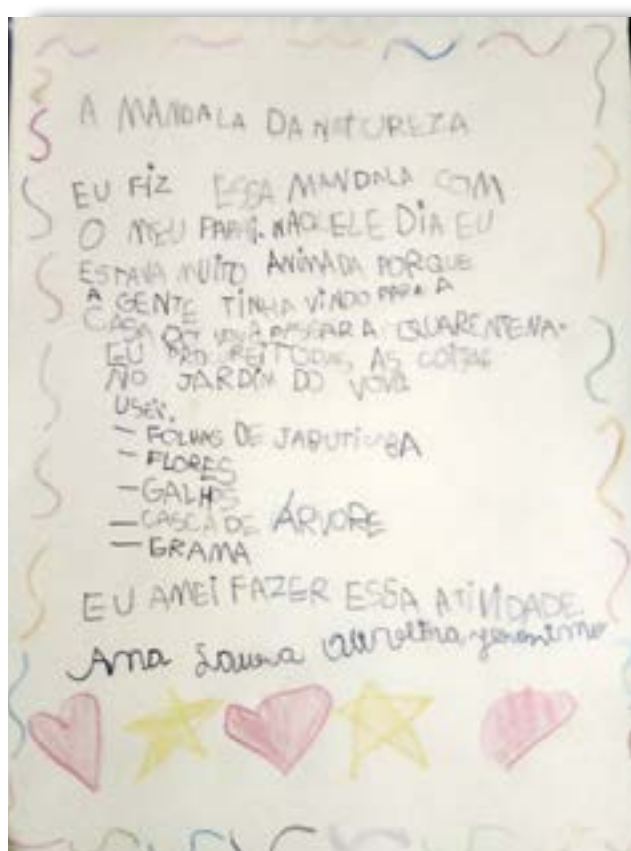 A MANDALA DA NATUREZA
EU FIZ ESSA MANDALA COM
O MEU PAPAI. NAQUELE DIA EU
ESTAVA MUITO ANIMADA PORQUE
A GENTE TINHA VINDO PARA A
CASA DO VOVÔ PASSAR A QUARENTENA.
EU TODAS AS COISAS
NO JARDIM DO VOVÔ
USEI.
- FOLHAS DE JABUTICABA
- FLORES
- GALHOS
- CASCA DE ÁRVORE
- GRAMA
EU AMEI FAZER ESSA ATIVIDADE.
Ana Laura